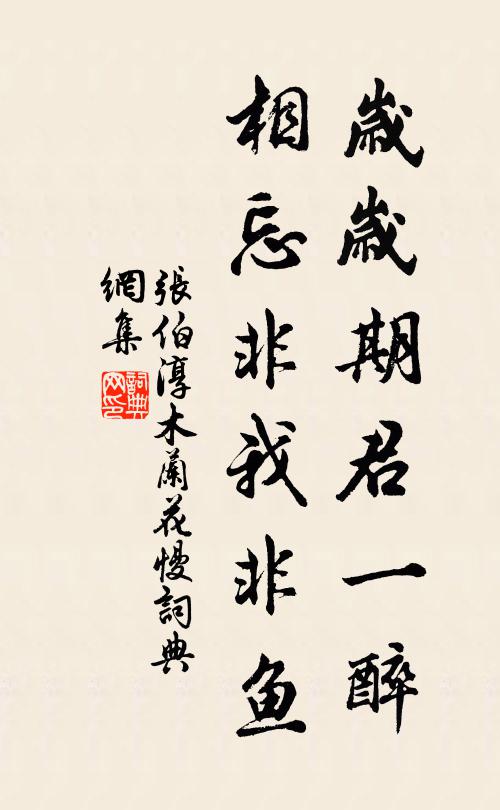 歲歲期君一醉
相忘非我非鱼
張伯淳木蘭花慢詞典
網集
詞典网印